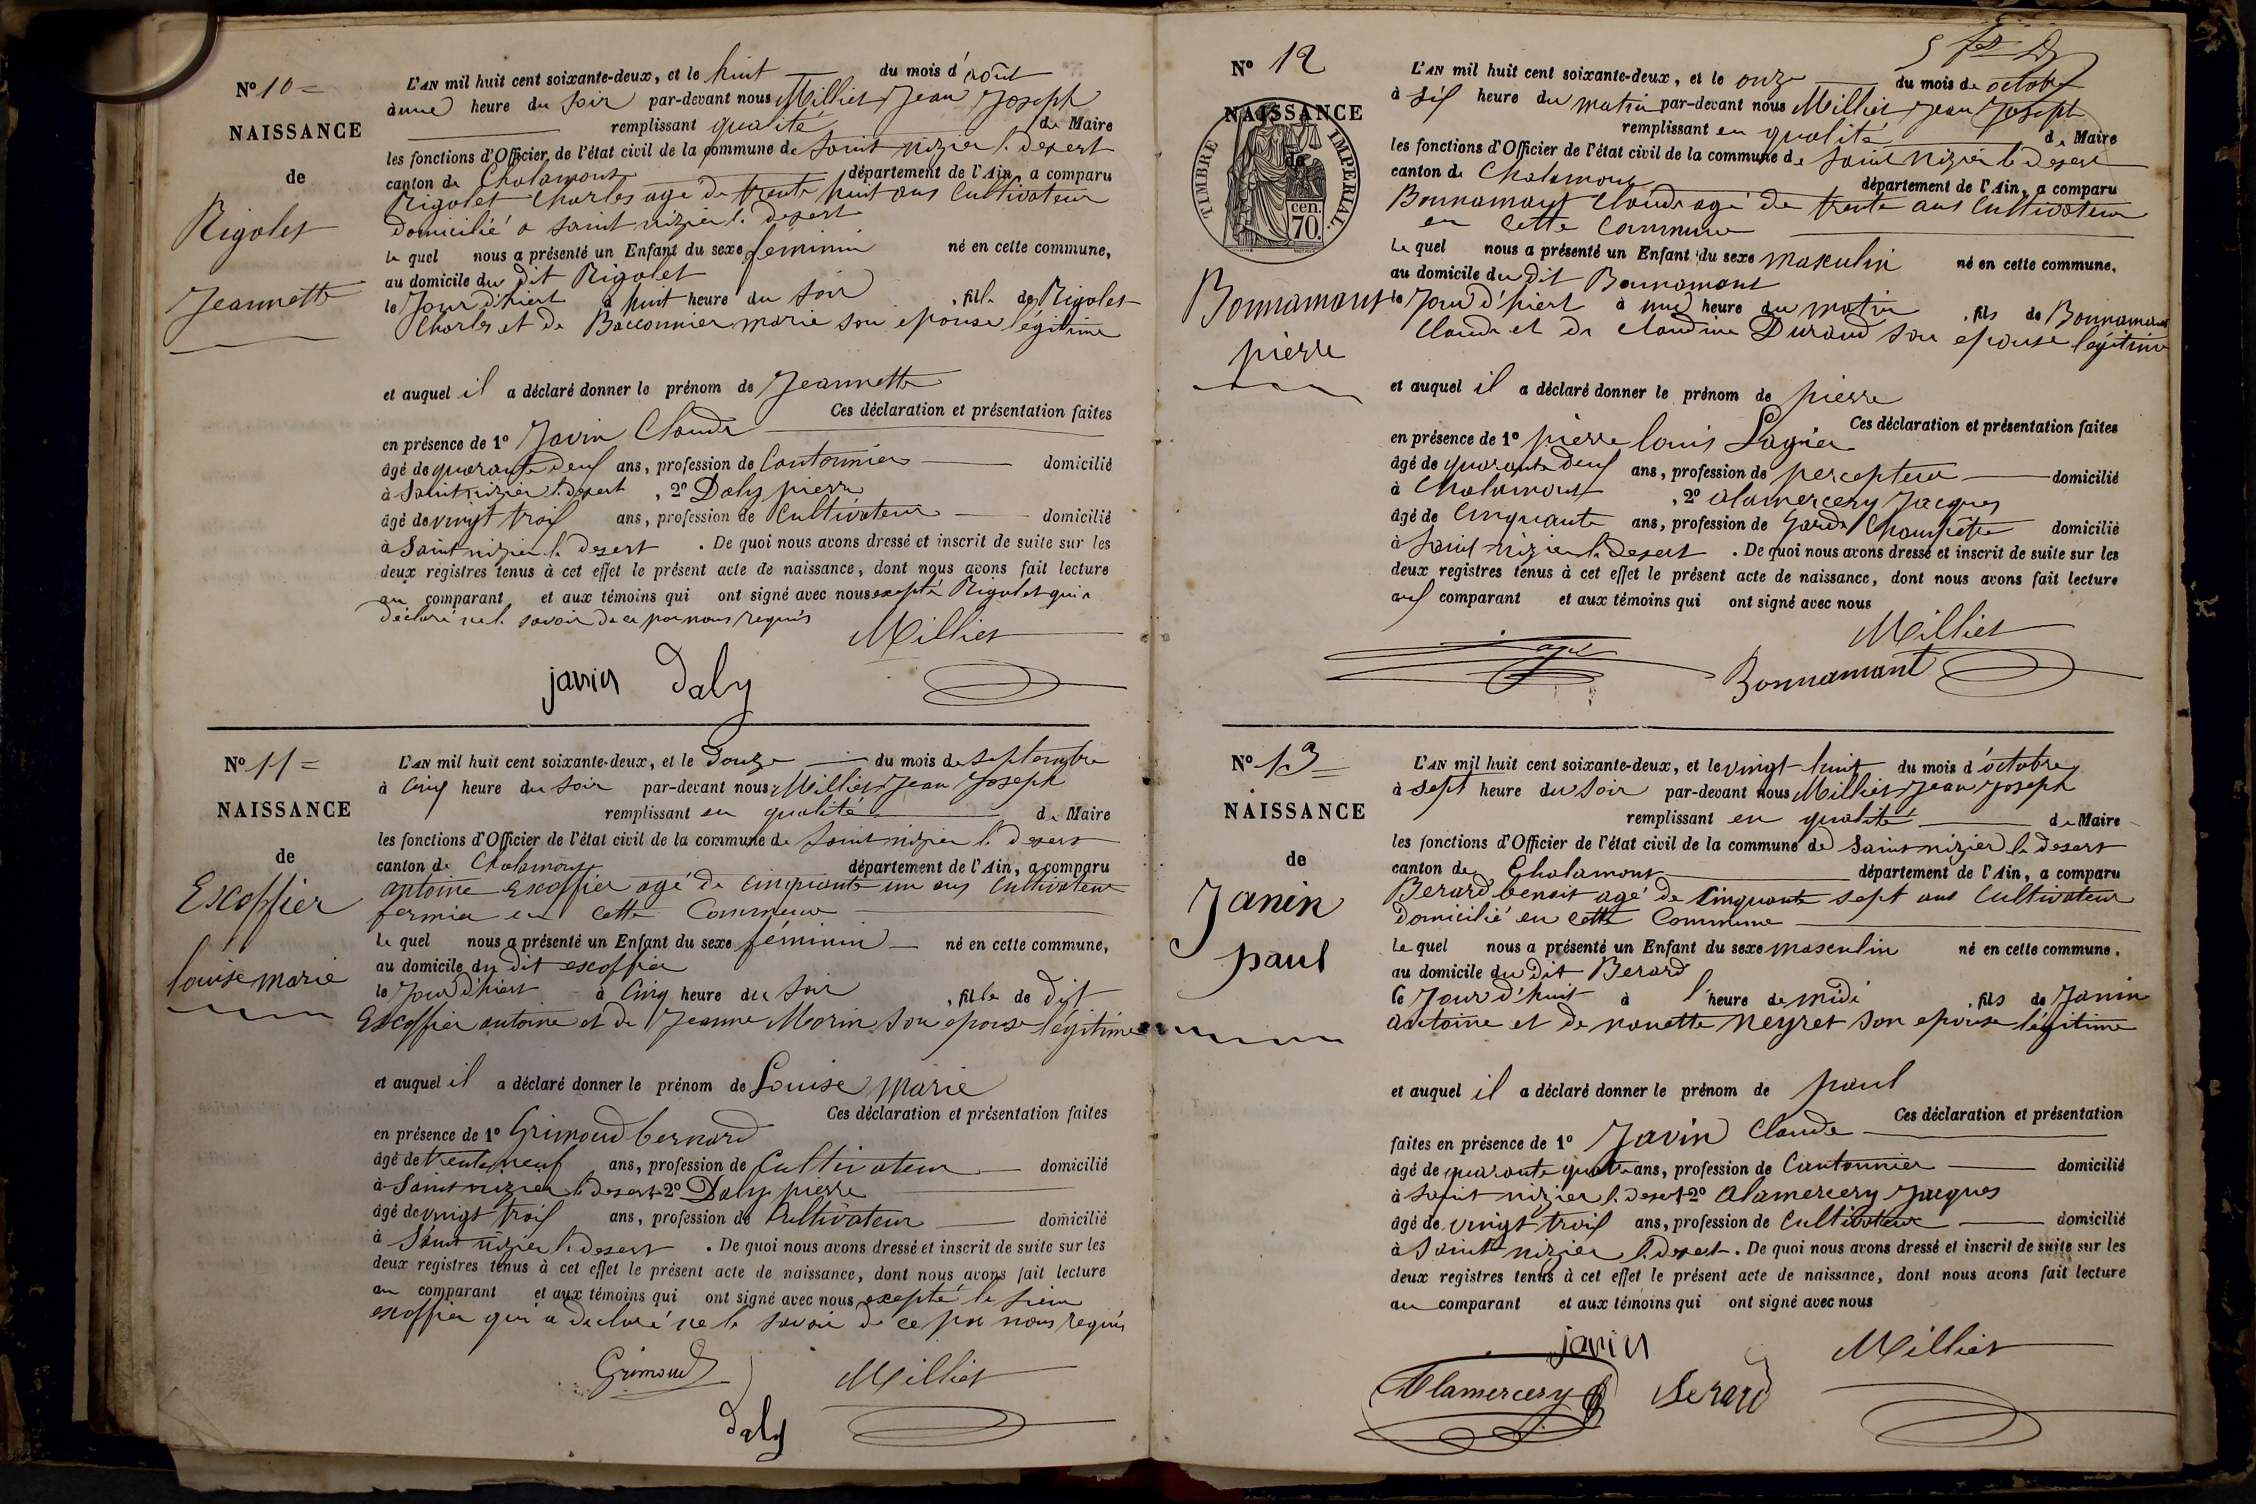 N° 10 =
NAISSANCE
de
Rigolet
Jeannette
L'AN mil huit cent soixante-deux, et le huit du mois d'août
à une heure du soir par-devant nous Milliet Jean Joseph
remplissant qualité de Maire
les fonctions d'Officier de l'état civil de la commune de saint nizier le desert
canton de Chalamont département de l'Ain, a comparu
Rigolet Charles agé de trente huit ans Cultivateur
domicilié a saint nizier le desert
le quel nous a présenté un Enfant du sexe feminin né en cette commune,
au domicile du dit Rigolet
le Jour d'hiert à huit heure du soir , fille de Rigolet
Charles et de Bacconnier marie son epouse légitime
et auquel il a déclaré donner le prénom de Jeannette
Ces déclaration et présentation faites
en présence de 1° Javin Claude
âgé de quarante deux ans, profession de Cantonnier domicilié
à Saint nizier le desert , 2° Daly pierre
âgé de vingt trois ans, profession de Cultivateur domicilié
à Saint nizier le desert . De quoi nous avons dressé et inscrit de suite sur les
deux registres tenus à cet effet le présent acte de naissance, dont nous avons fait lecture
au comparant et aux témoins qui ont signé avec nous excepté Rigolet qui a
déclaré ne le savoir de ce par nous requis
Milliet
javin Daly
N° 11 =
NAISSANCE
de
Escoffier
louise marie
L'AN mil huit cent soixante-deux, et le Douze du mois de septembre
à Cinq heure du soir par-devant nous Milliet Jean Joseph
remplissant en qualité de Maire
les fonctions d'Officier de l'état civil de la commune de saint nizier le desert
canton de Chalamont département de l'Ain, a comparu
antoine Escoffier agé de cinquante un ans Cultivateur
fermier en cette Commune
le quel nous a présenté un Enfant du sexe féminin né en cette commune,
au domicile du dit escoffier
le Jour d'hiert à Cinq heure du soir , fille de dit
Escoffier antoine et de Jeanne Morin son epouse légitime
et auquel il a déclaré donner le prénom de Louise Marie
Ces déclaration et présentation faites
en présence de 1° Grimoud bernard
âgé de trente neuf ans, profession de Cultivateur domicilié
à Saint nizier le desert 2° Daly pierre
âgé de vingt trois ans, profession de Cultivateur domicilié
à Saint nizier le desert . De quoi nous avons dressé et inscrit de suite sur les
deux registres tenus à cet effet le présent acte de naissance, dont nous avons fait lecture
au comparant et aux témoins qui ont signé avec nous excepté le sieur
escoffier qui a declaré ne le savoir de ce par nous requis
Grimoud Milliet
Daly
N° 12
NAISSANCE
de
TIMBRE IMPERIAL
cen.
70.
Bonnamant
pierre
L'AN mil huit cent soixante-deux, et le onze du mois de octobre
à six heure du matin par-devant nous Milliet Jean Joseph
remplissant en qualité de Maire
les fonctions d'Officier de l'état civil de la commune de saint Nizier le desert
canton de Chalamont département de l'Ain, a comparu
Bonnamant Claude agé de trente ans Cultivateur
en cette Commune
le quel nous a présenté un Enfant du sexe masculin né en cette commune,
au domicile du dit Bonnamant
le Jour d'hiert à une heure du matin , fils de Bonnamant
Claude et de Claudine Durand son epouse légitime
et auquel il a déclaré donner le prénom de pierre
Ces déclaration et présentation faites
en présence de 1° pierre louis Lagier
âgé de quarante deux ans, profession de percepteur domicilié
à Chalamont , 2° alamercery Jacques
âgé de Cinquante ans, profession de garde Champêtre domicilié
à saint nizier le desert . De quoi nous avons dressé et inscrit de suite sur les
deux registres tenus à cet effet le présent acte de naissance, dont nous avons fait lecture
aux comparant et aux témoins qui ont signé avec nous
Milliet
Bonnamant
N° 13
NAISSANCE
de
Janin
paul
L'AN mil huit cent soixante-deux, et le vingt huit du mois d'octobre
à sept heure du soir par-devant nous Milliet Jean Joseph
remplissant en qualité de Maire
les fonctions d'Officier de l'état civil de la commune de saint nizier le desert
canton de Chalamont département de l'Ain, a comparu
Berard benoit agé de Cinquante sept ans Cultivateur
Domicilié en cette Commune
le quel nous a présenté un Enfant du sexe masculin né en cette commune,
au domicile du dit Berard
le Jour d'huit à l'heure de midi , fils de Janin
antoine et de nanette Neyret son epouse légitime
et auquel il a déclaré donner le prénom de paul
Ces déclaration et présentation
faites en présence de 1° Javin Claude
âgé de quarante quatre ans, profession de Cantonnier domicilié
à saint nizier le desert 2° Alamercery Jacques
âgé de vingt trois ans, profession de Cultivateur domicilié
à saint nizier le desert . De quoi nous avons dressé et inscrit de suite sur les
deux registres tenus à cet effet le présent acte de naissance, dont nous avons fait lecture
au comparant et aux témoins qui ont signé avec nous
javin Milliet
Alamercery Berard